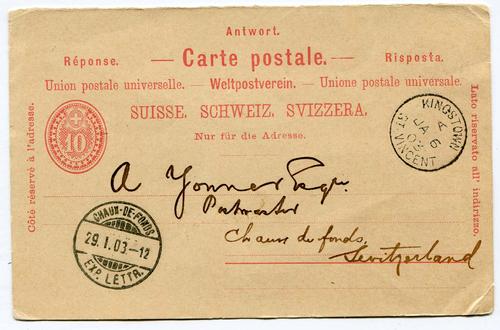 Antwort.
Réponse. — Carte postale. — Risposta.
Union postale universelle. — Weltpostverein. — Unione postale universale.
SUISSE. SCHWEIZ. SVIZZERA.
Nur für die Adresse.
Côté réservé à l'adresse.
Lato riservato all' indirizzo.
10
KINGSTOWN
A
JA 6
03
ST. VINCENT
A Yonner Esqr
Postmaster
Chaux de fonds
Switzerland
CHAUX-DE-FONDS
29.I.03.-12
EXP. LETTR.